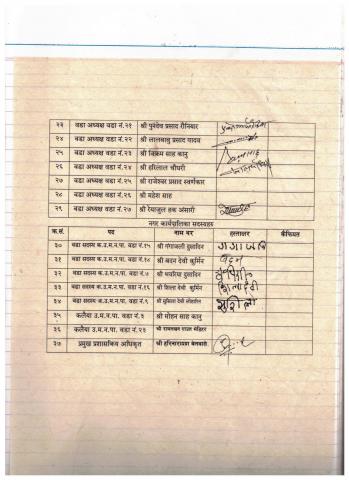 २३ वडा अध्यक्ष वडा नं.२१ श्री पुर्वदेव प्रसाद रौनियार
२४ वडा अध्यक्ष वडा नं.२२ श्री लालबाबु प्रसाद यादव
२५ वडा अध्यक्ष वडा नं.२३ श्री विक्रम साह कानु
२६ वडा अध्यक्ष वडा नं.२४ श्री हरिलाल चौधरी
२७ वडा अध्यक्ष वडा नं.२५ श्री राजेश्वर प्रसाद स्वर्णकार
२८ वडा अध्यक्ष वडा नं.२६ श्री महेश साह
२९ वडा अध्यक्ष वडा नं.२७ श्री रेयाजुल हक अंसारी
नगर कार्यपालिका सदस्यहरु
क्र.सं. पद नाम थर हस्ताक्षर कैफियत
३० वडा सदस्य क.उ.म.न.पा. वडा नं.१५ श्री गंगाजली दुसाधिन गगाजल
३१ वडा सदस्य क.उ.म.न.पा. वडा नं.१० श्री बदन देवी कुर्मिन बदन
३२ वडा सदस्य क.उ.म.न.पा. वडा नं.७ श्री दुसाधिन
३३ वडा सदस्य क.उ.म.न.पा. वडा नं.१६ श्री शिला देवी कुर्मिन शिला देवी
३४ वडा सदस्य क.उ.म.न.पा. वडा नं.९ श्री सुशिला देवी लोहारिन सुशिला
३५ कलैया उ.म.न.पा. वडा नं.३ श्री मोहन साह कानु
३६ कलैया उ.म.न.पा. वडा नं.२३ श्री
३७ प्रमुख प्रशासकिय अधिकृत श्री हरिनारायण बेलवासे